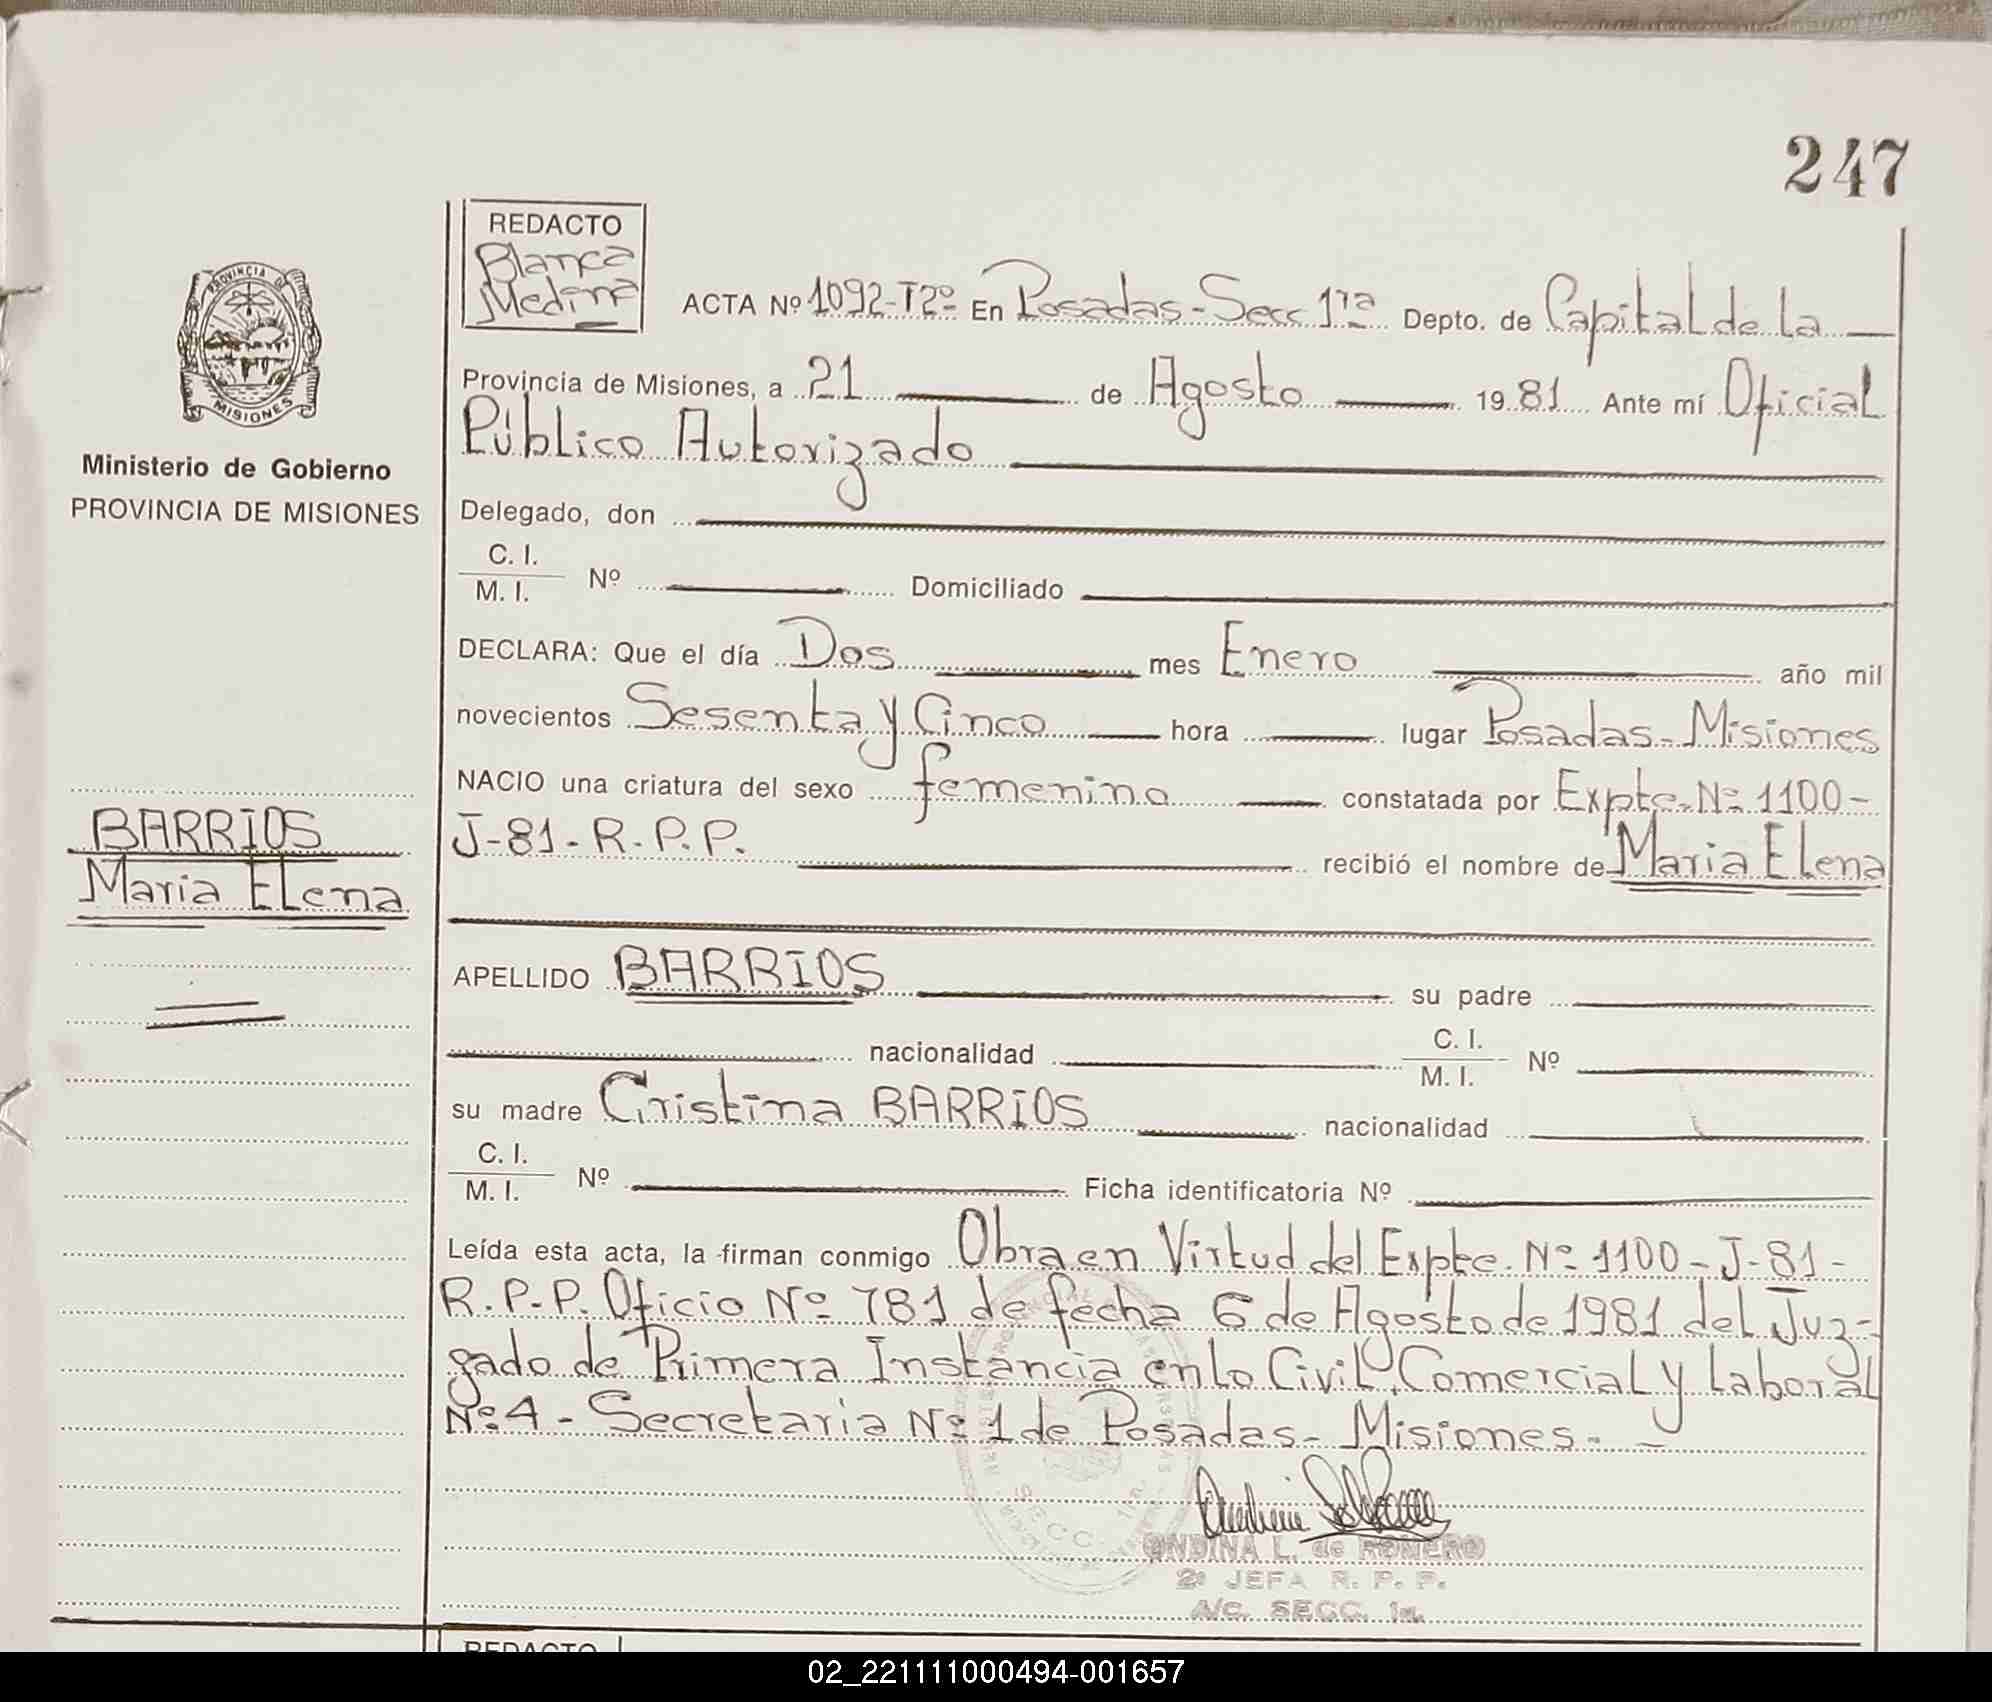 247
REDACTO
Blanca
Medina
ACTA Nº 1092-T2º En Posadas-Secc 1ra Depto. de Capital de la
Provincia de Misiones, a 21 de Agosto 1981 Ante mí Oficial
Público Autorizado
PROVINCIA DE
MISIONES
Ministerio de Gobierno
PROVINCIA DE MISIONES
Delegado, don
C. I.
M. I. Nº Domiciliado
DECLARA: Que el día Dos mes Enero año mil
novecientos Sesenta y Cinco hora lugar Posadas-Misiones
NACIO una criatura del sexo femenino constatada por Expte.Nº 1100-
J-81-R.P.P. recibió el nombre de Maria Elena
BARRIOS
Maria Elena
APELLIDO BARRIOS su padre
nacionalidad C. I.
M. I. Nº
su madre Cristina BARRIOS nacionalidad
C. I.
M. I. Nº Ficha identificatoria Nº
Leída esta acta, la firman conmigo Obra en Virtud del Expte. Nº 1100-J-81-
R.P.P. Oficio Nº 781 de fecha 6 de Agosto de 1981 del Juz-
gado de Primera Instancia en lo Civil, Comercial y Laboral
Nº 4 - Secretaria Nº 1 de Posadas - Misiones.-
SECC. 1ra.
ONDINA L. de ROMERO
2º JEFA R. P. P.
A/C. SECC. 1a.
REDACTO
02_221111000494-001657